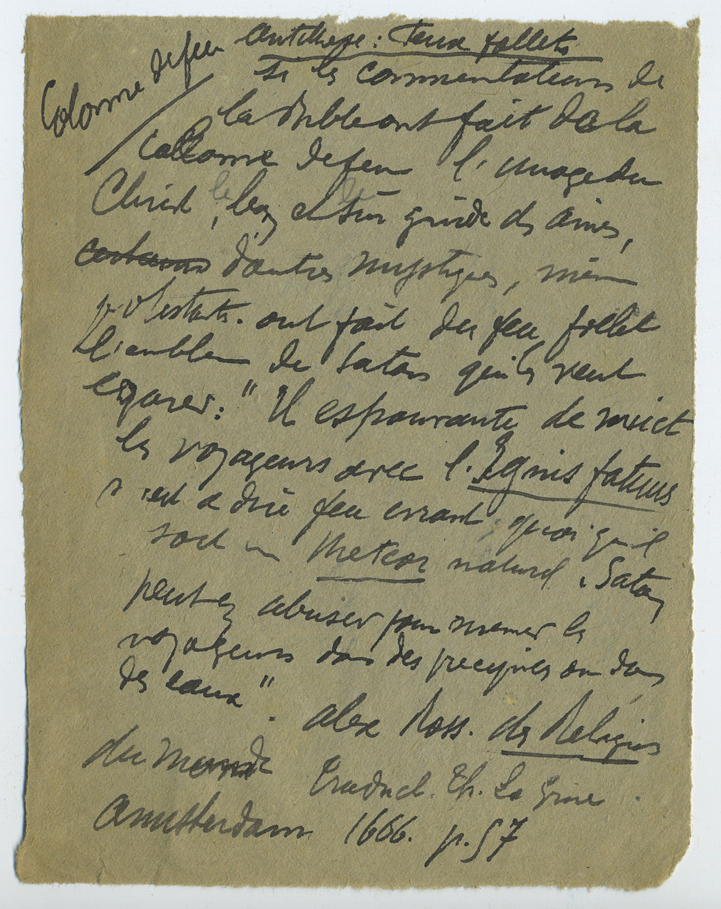 Colonne de feu
antithèse : Feux follets
si les commentateurs de
la Bible ont fait de la
colonne de feu l'image du
Christ, guide des âmes,
d'autres mystiques, même
protestants. ont fait du feu follet
l'emblème de Satan qui les veut
égarer : " Il espouvante de nuict
les voyageurs avec l'Ignis fatuus
c'est a dire feu errant, quoi qu'il
soit un Meteor naturel, Satan
peut en abuser pour mener les
voyageurs dans des precipices ou dans
des eaux ".
alex Ross. des Religions
du monde Traduct. Th. La Grue.
Amsterdam 1666. p. 57